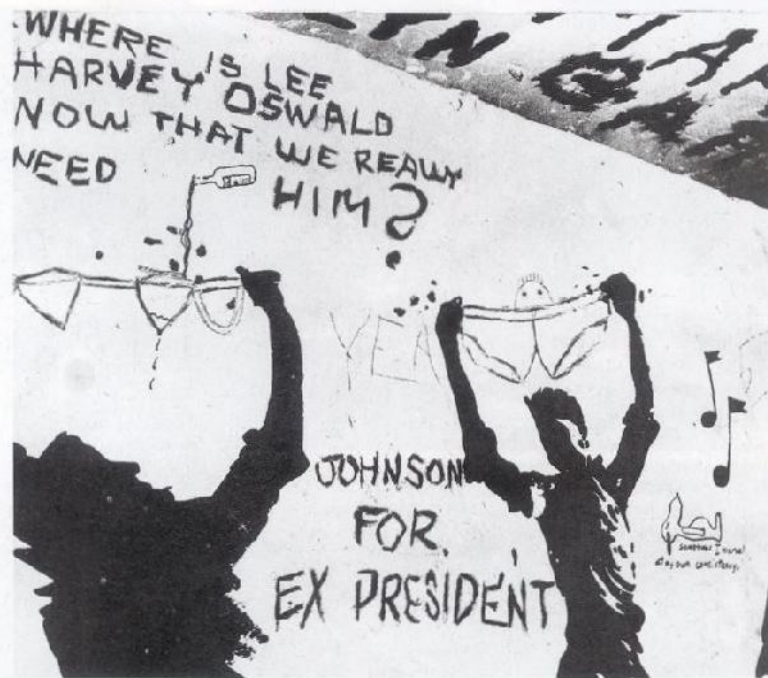 WHERE IS LEE
HARVEY OSWALD
NOW THAT WE REALLY
NEED HIM?
YEA
JOHNSON
FOR
EX PRESIDENT